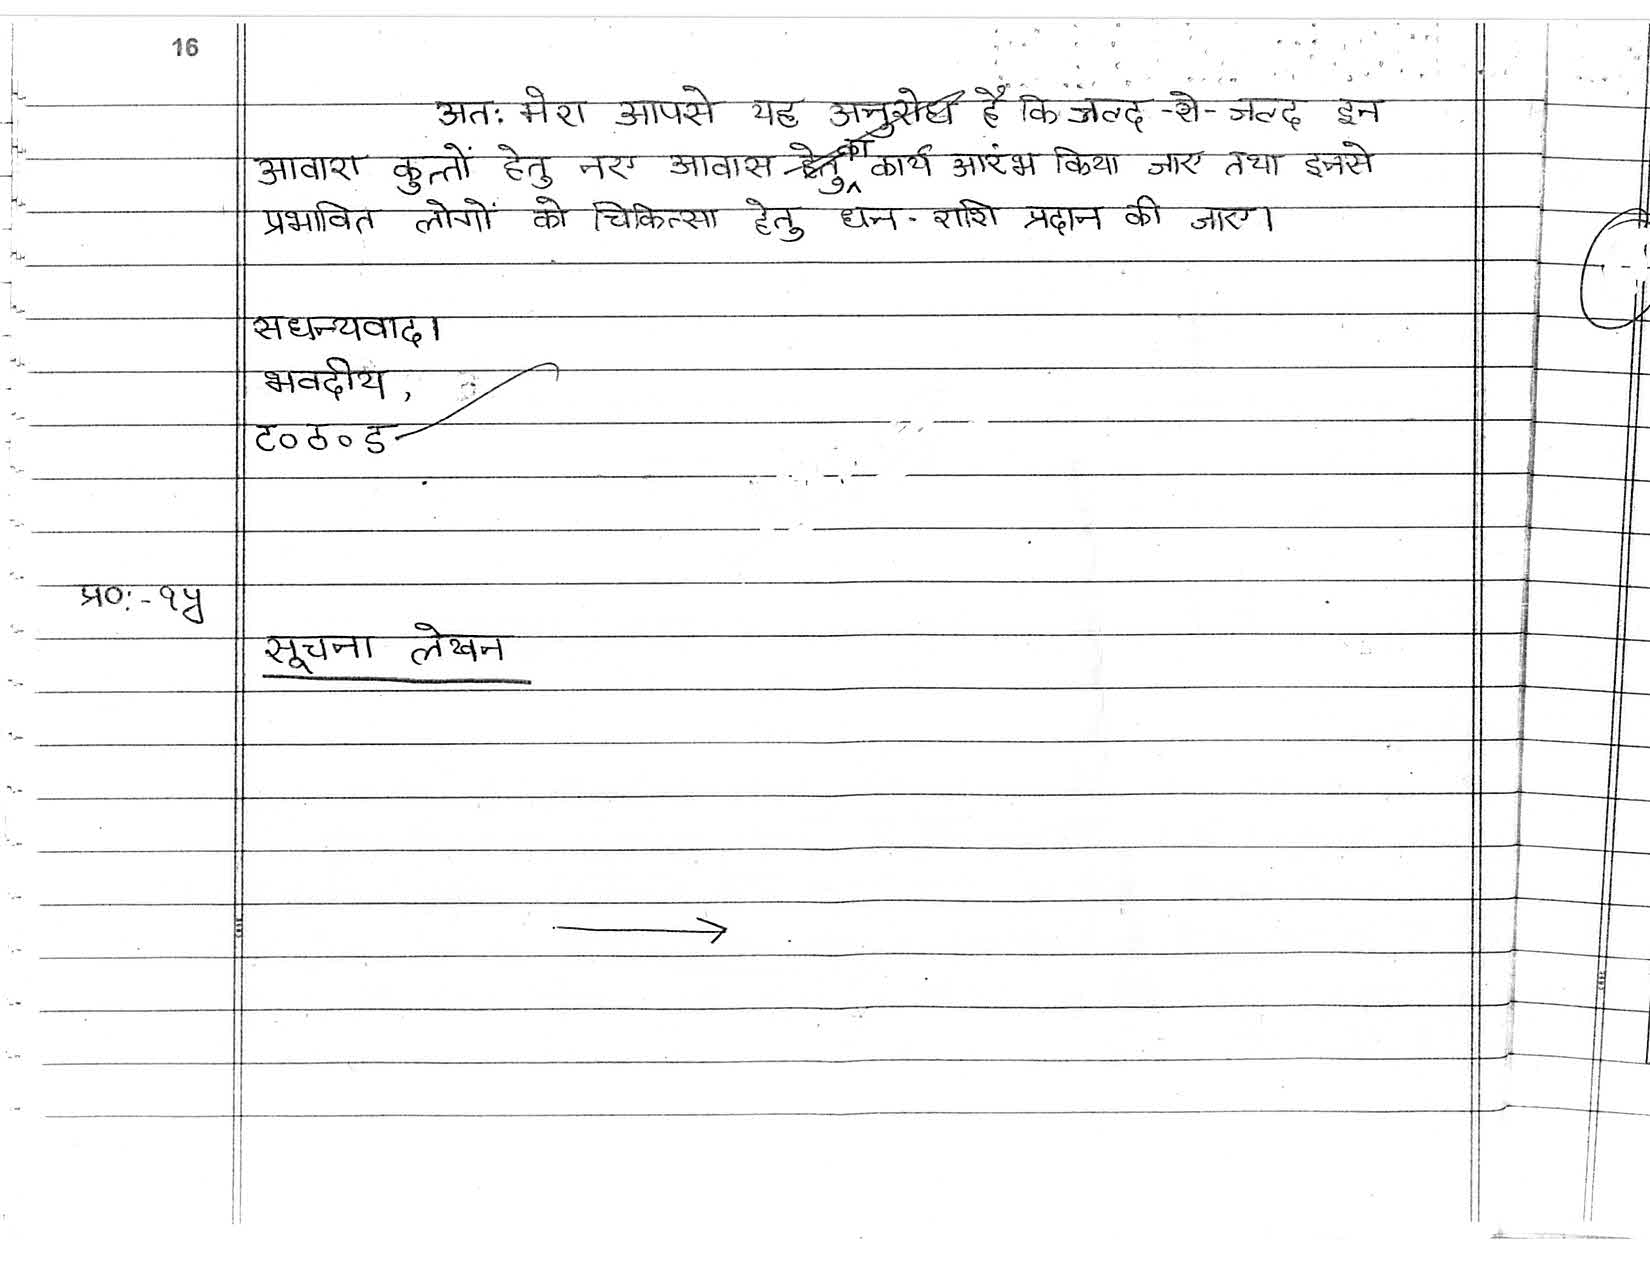 16
अतः मेरा आपसे यह अनुरोध है कि जल्द-शे-जल्द इन
आवारा कुत्तों हेतु नए आवास का कार्य आरंभ किया जाए तथा इनसे
प्रभावित लोगों को चिकित्सा हेतु धन-राशि प्रदान की जाए।
सधन्यवाद।
भवदीय,
ट०ठ०ड
प्र०:-१५
सूचना लेखन